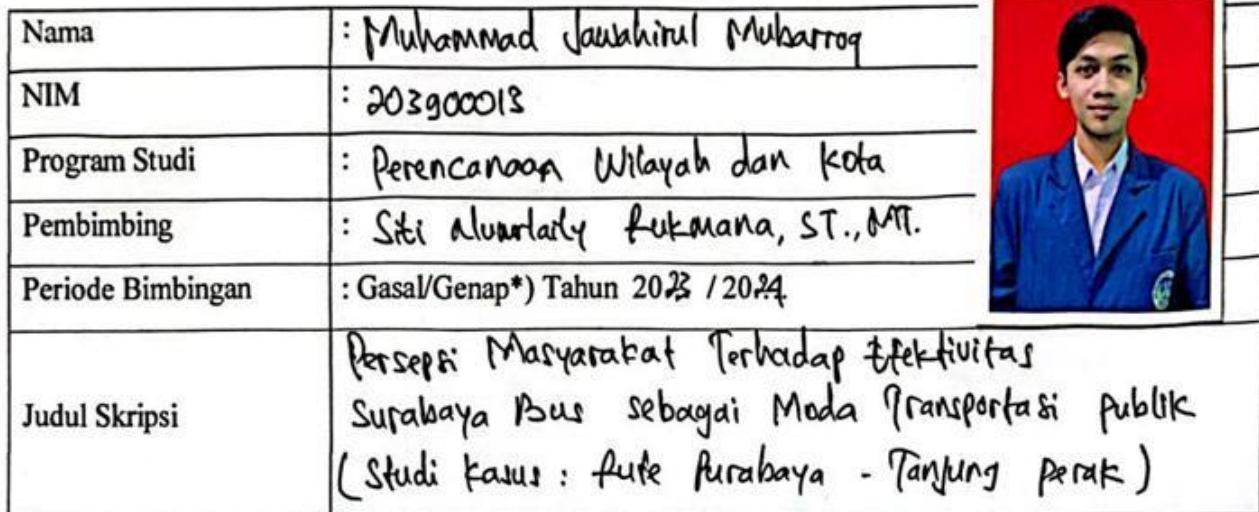 Nama : Muhammad Jawahirul Mubarroq
NIM : 203900013
Program Studi : Perencanaan Wilayah dan Kota
Pembimbing : Siti Rukmana, ST., MT.
Periode Bimbingan : Gasal/Genap*) Tahun 2023 / 2024
Judul Skripsi
Persepsi Masyarakat Terhadap Efektivitas
Surabaya Bus sebagai Moda Transportasi Publik
(Studi Kasus : Rute Purabaya - Tanjung Perak)